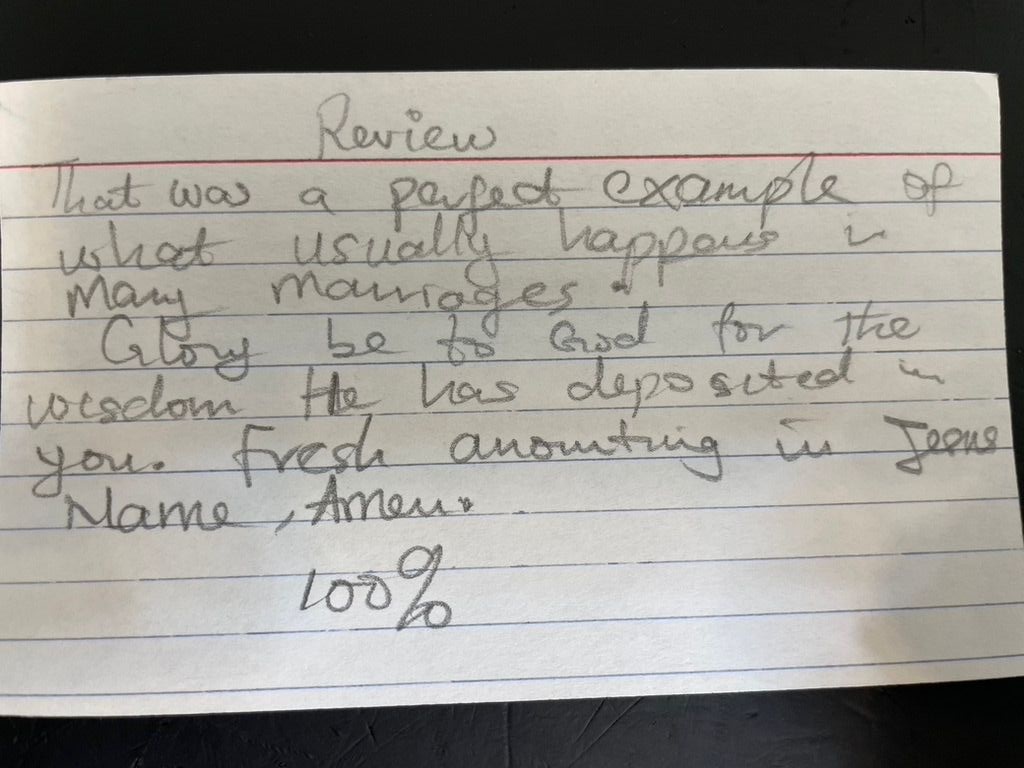 Review
That was a perfect example of
what usually happens in
many marriages.
Glory be to God for the
wisdom He has deposited in
you. Fresh anointing in Jesus
Name, Amen.
100%